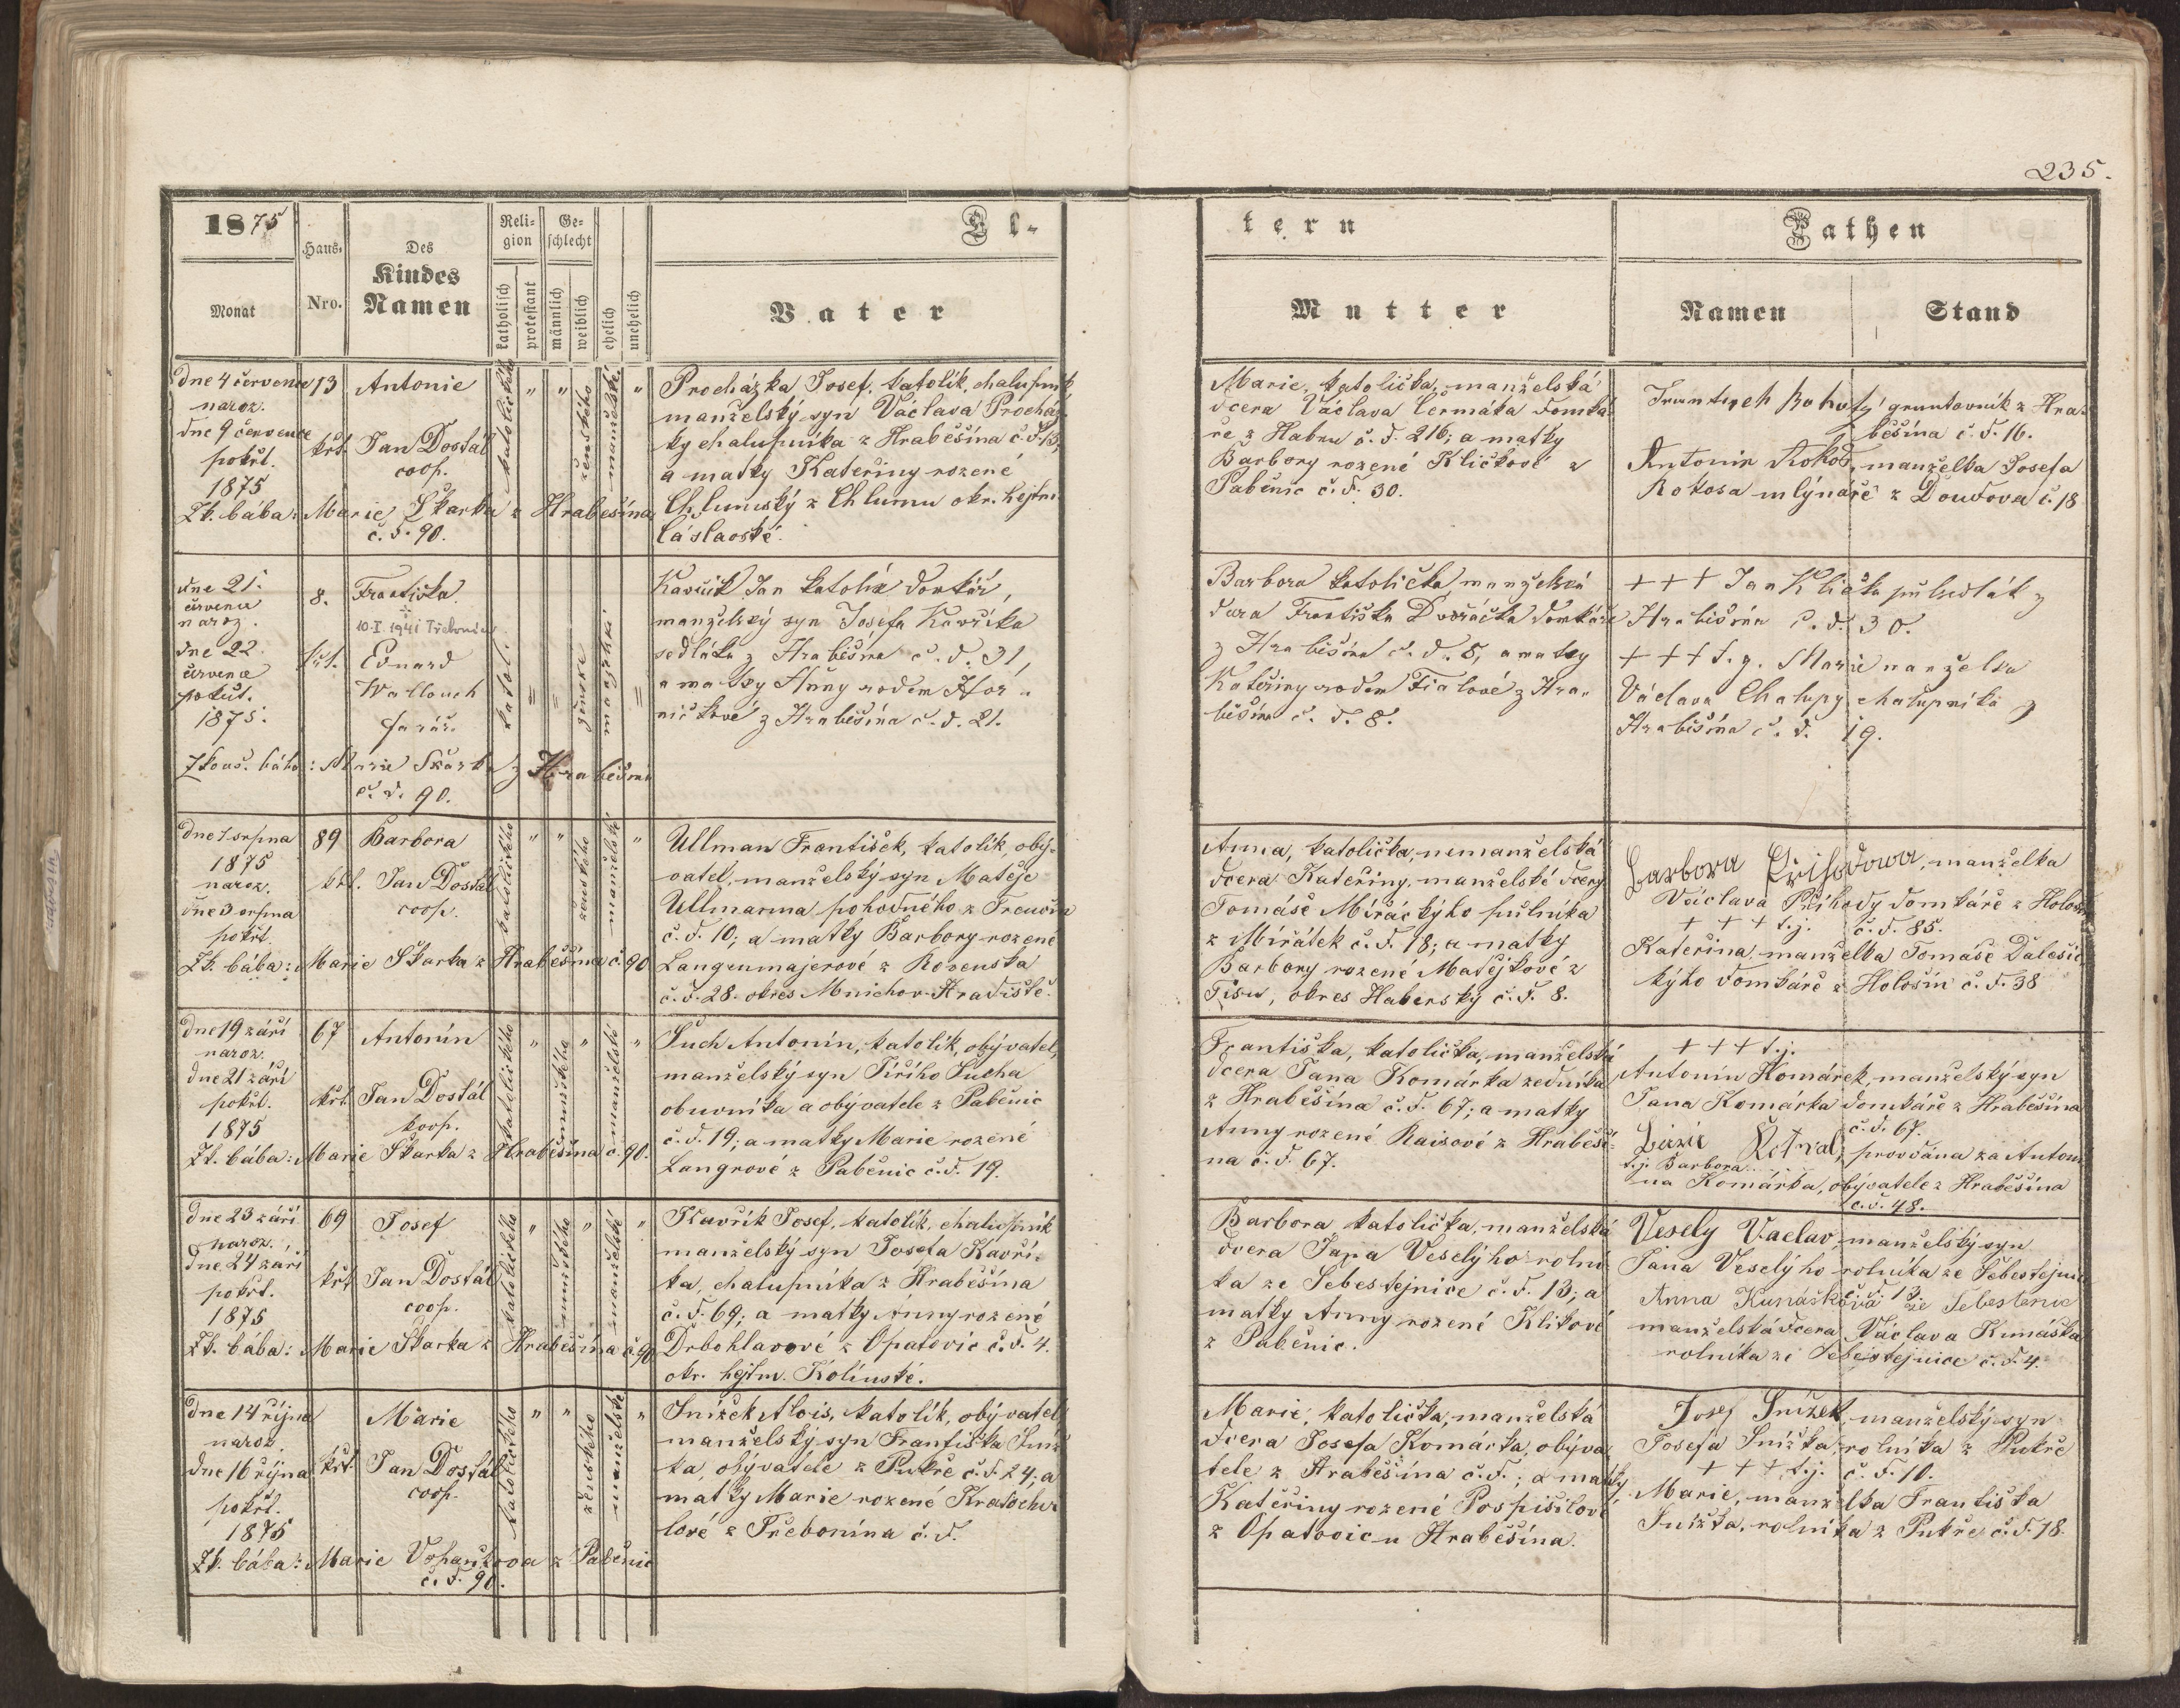 235.
1875
Monat
Haus-
Nro.
Des
Kindes
Namen
Reli-
gion
katholisch
protestant
Ge-
schlecht
männlich
weiblich
ehelich
unehelich
El-
Vater
tern
Mutter
Pathen
Namen
Stand
dne 4 července
naroz.
dne 9 července
pokřt.
1875
13
křt.
Antonie
Jan Dostál
coop.
katolického
"
"
ženského
manželské
"
Zk. bába: Marie Škarka z Hraběšína
č. d. 90.
Procházka Josef, katolík, chalupník,
manželský syn Václava Procház-
ky chalupníka z Hraběšína č. d. 13,
a matky Kateřiny rozené
Chlumský z Chlumu okr. hejtm.
Čáslavské.
Marie, katolička, manželská
dcera Václava Čermáka domká-
ře z Habru č. d. 216; a matky
Barbory rozené Kličkové z
Paběnic č. d. 30.
gruntovník z Hra-
běšína č. d. 16.
manželka Josefa
Rokosa mlýnáře z Doudova č. 18
dne 21.
července
naroz.
dne 22.
července
pokřt.
1875.
8.
křt.
Františka
+
10.I.1941 Třebonín
Eduard
Wallouch
farář.
katol.
=
=
ženské
manželské
=
Zkouš. bába: Marie Škarka z Hraběšína
č. d. 90.
Kavřík Jan katolík domkář,
manželský syn Josefa Kavříka
sedláka z Hraběšína č. d. 31,
a matky Anny rodem Hor-
ničkové z Hraběšína č. d. 21.
Barbora katolička manželská
dcera Františka Dvořáčka domkáře
z Hraběšína č. d. 8, a matky
Kateřiny rodem Fialové z Hra-
běšína č. d. 8.
+++ Jan Klička půlsedlák z
Hraběšína č. d. 30.
+++ t. j. Marie manželka
Václava Chalupy chalupníka z
Hraběšína č. d. 19.
dne 1 srpna
1875
naroz.
dne 3 srpna
pokřt.
89
křt.
Barbora
Jan Dostál
coop.
katolického
"
"
ženského
manželské
"
Zk. bába: Marie Škarka z Hraběšína č. 90
Ullman František, katolík, oby-
vatel, manželský syn Matěje
Ullmanna pohodného z
č. d. 10; a matky Barbory rozené
Langenmajerové z Rovenska
č. d. 28. okres Mnichov-Hradiště.
Anna, katolička, nemanželská
dcera Kateřiny, manželské dcery
Tomáše Míráckýho půlníka
z Mírátek č. d. 18; a matky
Barbory rozené Matějkové z
Tisu, okres Haberský č. d. 8.
Barbora Přihodowa, manželka
Václava Příhody domkáře z Hološín
+ + + t. j. č. d. 85.
Kateřina manželka Tomáše Dalešic-
kýho domkáře z Hološin č. d. 38
dne 19 září
naroz.
dne 21 září
pokřt.
1875
67
křt.
Antonín
Jan Dostál
koop.
katolického
"
mužského
"
manželské
"
Zk. bába: Marie Škarka z Hraběšína č. 90.
Such Antonín, katolík, obývatel,
manželský syn Jiřího Sucha
obuvníka a obývatele z Paběnic
č. d. 19; a matky Marie rozené
Langrové z Paběnic č. d. 19.
Františka, katolička, manželská
dcera Jana Komárka zedníka
z Hraběšína č. d. 67; a matky
Anny rozené Raisové z Hraběší-
na č. d. 67.
+ + + t. j.
Antonín Komárek, manželský syn
Jana Komárka domkáře z Hraběšína
č. d. 67.
t. j. Barbora provdána za Anton-
na Komárka, obývatele z Hraběšína
č. d. 48.
dne 23 září
naroz.
dne 24 září
pokřt.
1875
69
křt.
Josef
Jan Dostál
coop.
katolického
"
mužského
"
manželské
"
Zk. bába: Marie Škarka z Hraběšína č. 90
Kavřík Josef, katolík, chalupník
manželský syn Josefa Kavří-
ka, chalupníka z Hraběšína
č. d. 69; a matky Anny rozené
Drbohlavové z Opatovic č. d. 4.
okr. hejtm. Kolínské.
Barbora katolička, manželská
dcera Jana Veselýho rolní-
ka ze Šebestejnice č. d. 13; a
matky Anny rozené Klikové
z Paběnic.
Vesely Vaclav, manželský syn
Jana Veselýho rolníka ze Šebestejnice
č. d. 13.
Anna Kunášková ze Šebestenic
manželská dcera Václava Kunáška
rolníka ze Šebestejnice č. d. 4.
dne 14 října
naroz.
dne 16 října
pokřt.
1875
křt.
Marie
Jan Dostál
coop.
katolického
"
"
ženského
manželské
"
Zk. bába: Marie z Paběnic
č. d. 90.
Snížek Alois, katolík, obývatel,
manželský syn Františka Sníž-
ka, obývatele z Pukře č. d. 24; a
matky Marie rozené Kratochví-
lové z Třebonína č. d.
Marie, katolička, manželská
dcera Josefa Komárka, obýva-
tele z Hraběšína č. d. ; a matky
Kateřiny rozené Pospíšilové
z Opatovic u Hraběšína.
Josef Snížek, manželský syn
Josefa Snížka, rolníka z Pukře
+ + + t. j. č. d. 10.
Marie, manželka Františka
Snížka, rolníka z Pukře č. d. 18.